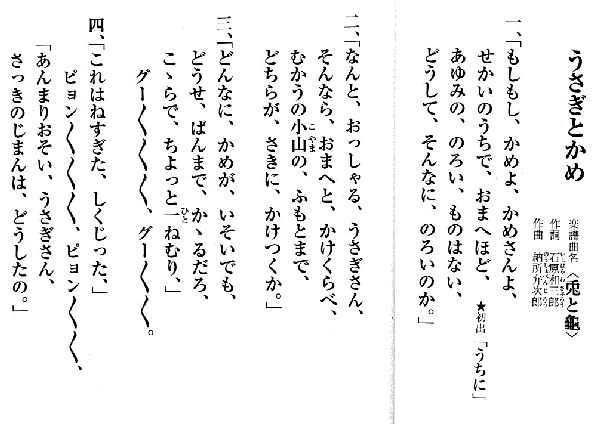 うさぎとかめ
楽譜曲名〈兎と龜〉
作詞 石原和三郎
作曲 納所弁次郎
一、「もしもし、かめよ、かめさんよ、
せかいのうちで、おまへほど、 ★初出「うちに」
あゆみの、のろい、ものはない、
どうして、そんなに、のろいのか。」
二、「なんと、おっしゃる、うさぎさん、
そんなら、おまへと、かけくらべ、
むかうの小山の、ふもとまで、
どちらが、さきに、かけつくか。」
三、「どんなに、かめが、いそいでも、
どうせ、ばんまで、かゝるだろ、
こゝらで、ちよっと一ねむり、」
グー〳〵〳〵〳〵、グー〳〵〳〵。
四、「これはねすぎた、しくじった、」
ピョン〳〵〳〵〳〵、ピョン〳〵〳〵、
「あんまりおそい、うさぎさん、
さっきのじまんは、どうしたの。」